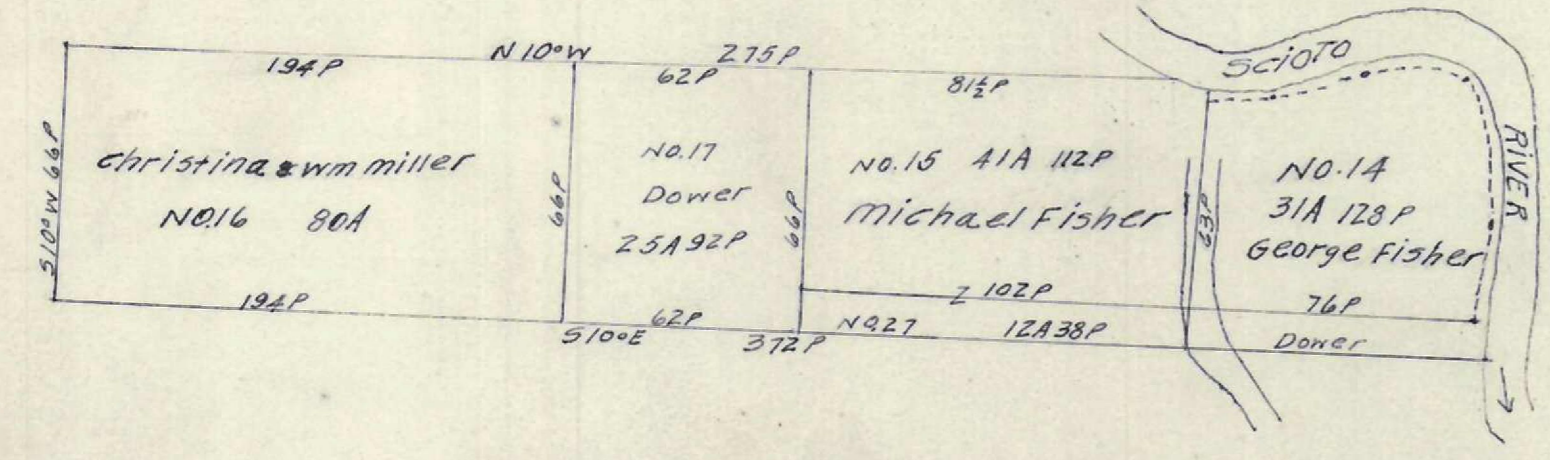 N 10° W 275P
194P
62P
81½P
SCIOTO
RIVER
S10°W 66P
Christina & Wm Miller
NO.16 80A
66P
NO.17
Dower
25A 92P
66P
NO.15 41A 112P
Michael Fisher
63P
NO.14
31A 128P
George Fisher
194P
62P
Z 102P
76P
S10°E 372P
NO.27 12A 38P
Dower